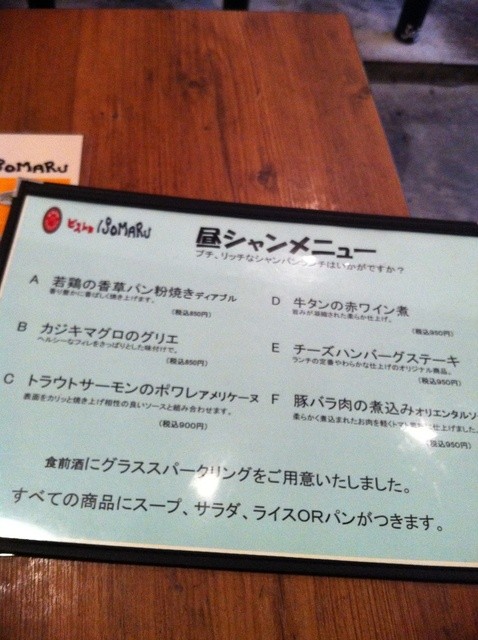 ISOMARU
ビストロ ISOMARU
昼シャンメニュー
プチ、リッチなシャンパンランチはいかがですか?
A 若鶏の香草パン粉焼きディアブル
香り豊かに香ばしく焼き上げます。
(税込850円)
B カジキマグロのグリエ
ヘルシーなフィレをさっぱりとした味付けで。
(税込850円)
C トラウトサーモンのポワレアメリケーヌ
表面をカリッと焼き上げ相性の良いソースと組み合わせます。
(税込900円)
D 牛タンの赤ワイン煮
旨みが凝縮された柔らか仕上げ。
(税込950円)
E チーズハンバーグステーキ
ランチの定番やわらかな仕上げのオリジナル商品。
(税込950円)
F 豚バラ肉の煮込みオリエンタルソ
柔らかく煮込まれたお肉を軽くトマト
仕上げました。
(税込950円)
食前酒にグラススパークリングをご用意いたしました。
すべての商品にスープ、サラダ、ライスORパンがつきます。